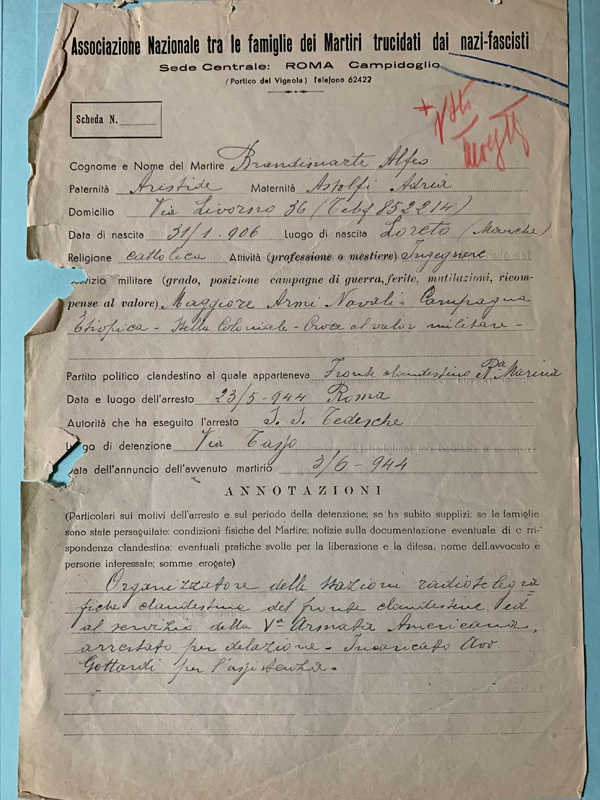 Associazione Nazionale tra le famiglie dei Martiri trucidati dai nazi-fascisti
Sede Centrale: ROMA Campidoglio
(Portico del Vignola) Telefono 62422
Scheda N.
+ Visto
Cognome e Nome del Martire Brandimarte Alfeo
Paternità Aristide Maternità Astolfi Adria
Domicilio Via Livorno 36 (Telef 852214)
Data di nascita 31/1-906 Luogo di nascita Loreto (Marche)
Religione cattolica Attività (professione o mestiere) Ingegnere
vizio militare (grado, posizione campagne di guerra, ferite, mutilazioni, ricom-
pense al valore) Maggiore Armi Navali - Campagna
Etiopica - Stella Coloniale - Croce al valor militare -
Partito politico clandestino al quale apparteneva Fronte clandestino Ra Marina
Data e luogo dell'arresto 23/5-944 Roma
Autorità che ha eseguito l'arresto S.S. Tedesche
uogo di detenzione Via Tasso
ata dell'annuncio dell'avvenuto martirio 3/6-944
ANNOTAZIONI
(Particolari sui motivi dell'arresto e sul periodo della detenzione; se ha subito supplizi; se le famiglie
sono state perseguitate: condizioni fisiche del Martire; notizie sulla documentazione eventuale di c rri-
spondenza clandestina: eventuali pratiche svolte per la liberazione e la difesa, nome dell'avvocato e
persone interessate; somme erogate)
Organizzatore delle stazioni radiotelegra
fiche clandestine del fronte clandestino ed
al servizio della Va Armata Americana,
arrestato per delazione - Incaricato Avv
Gottardi per l'assistenza.